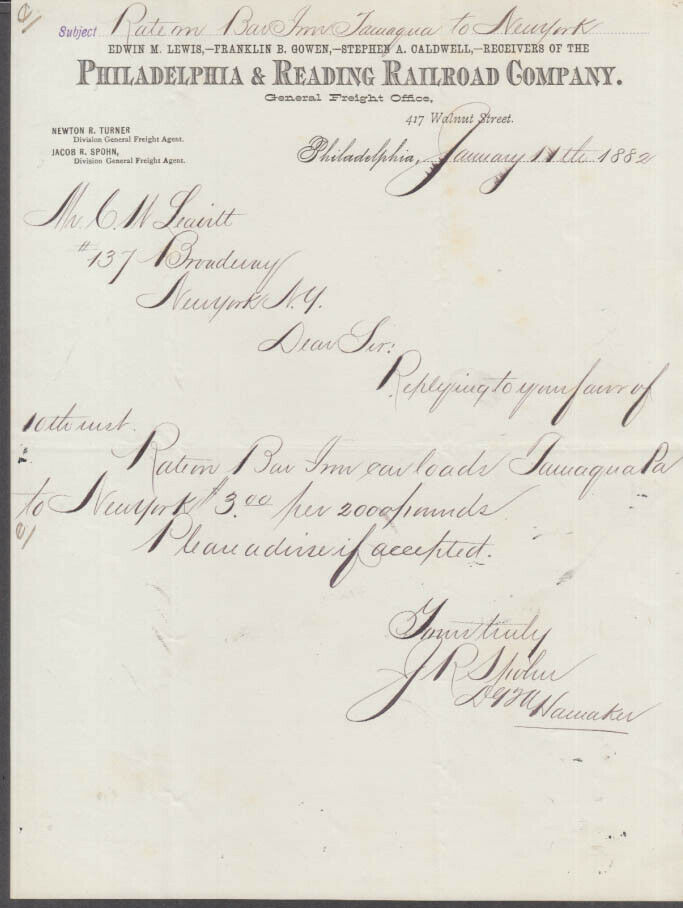 Subject Rate on Bar Iron Tamaqua to New York
EDWIN M. LEWIS,—FRANKLIN B. GOWEN,—STEPHEN A. CALDWELL,—RECEIVERS OF THE
PHILADELPHIA & READING RAILROAD COMPANY.
General Freight Office,
417 Walnut Street.
NEWTON R. TURNER
Division General Freight Agent.
JACOB R. SPOHN,
Division General Freight Agent.
Philadelphia, January 11th 1882
Mr. C. W. Leavitt
#137 Broadway
New York N.Y.
Dear Sir:
Replying to your favor of
10th inst.
Rate on Bar Iron car loads Tamaqua Pa
to New York $3.00 per 2000 pounds
Please advise if accepted.
Yours truly
J R Spohn
DGFA
Hamaker